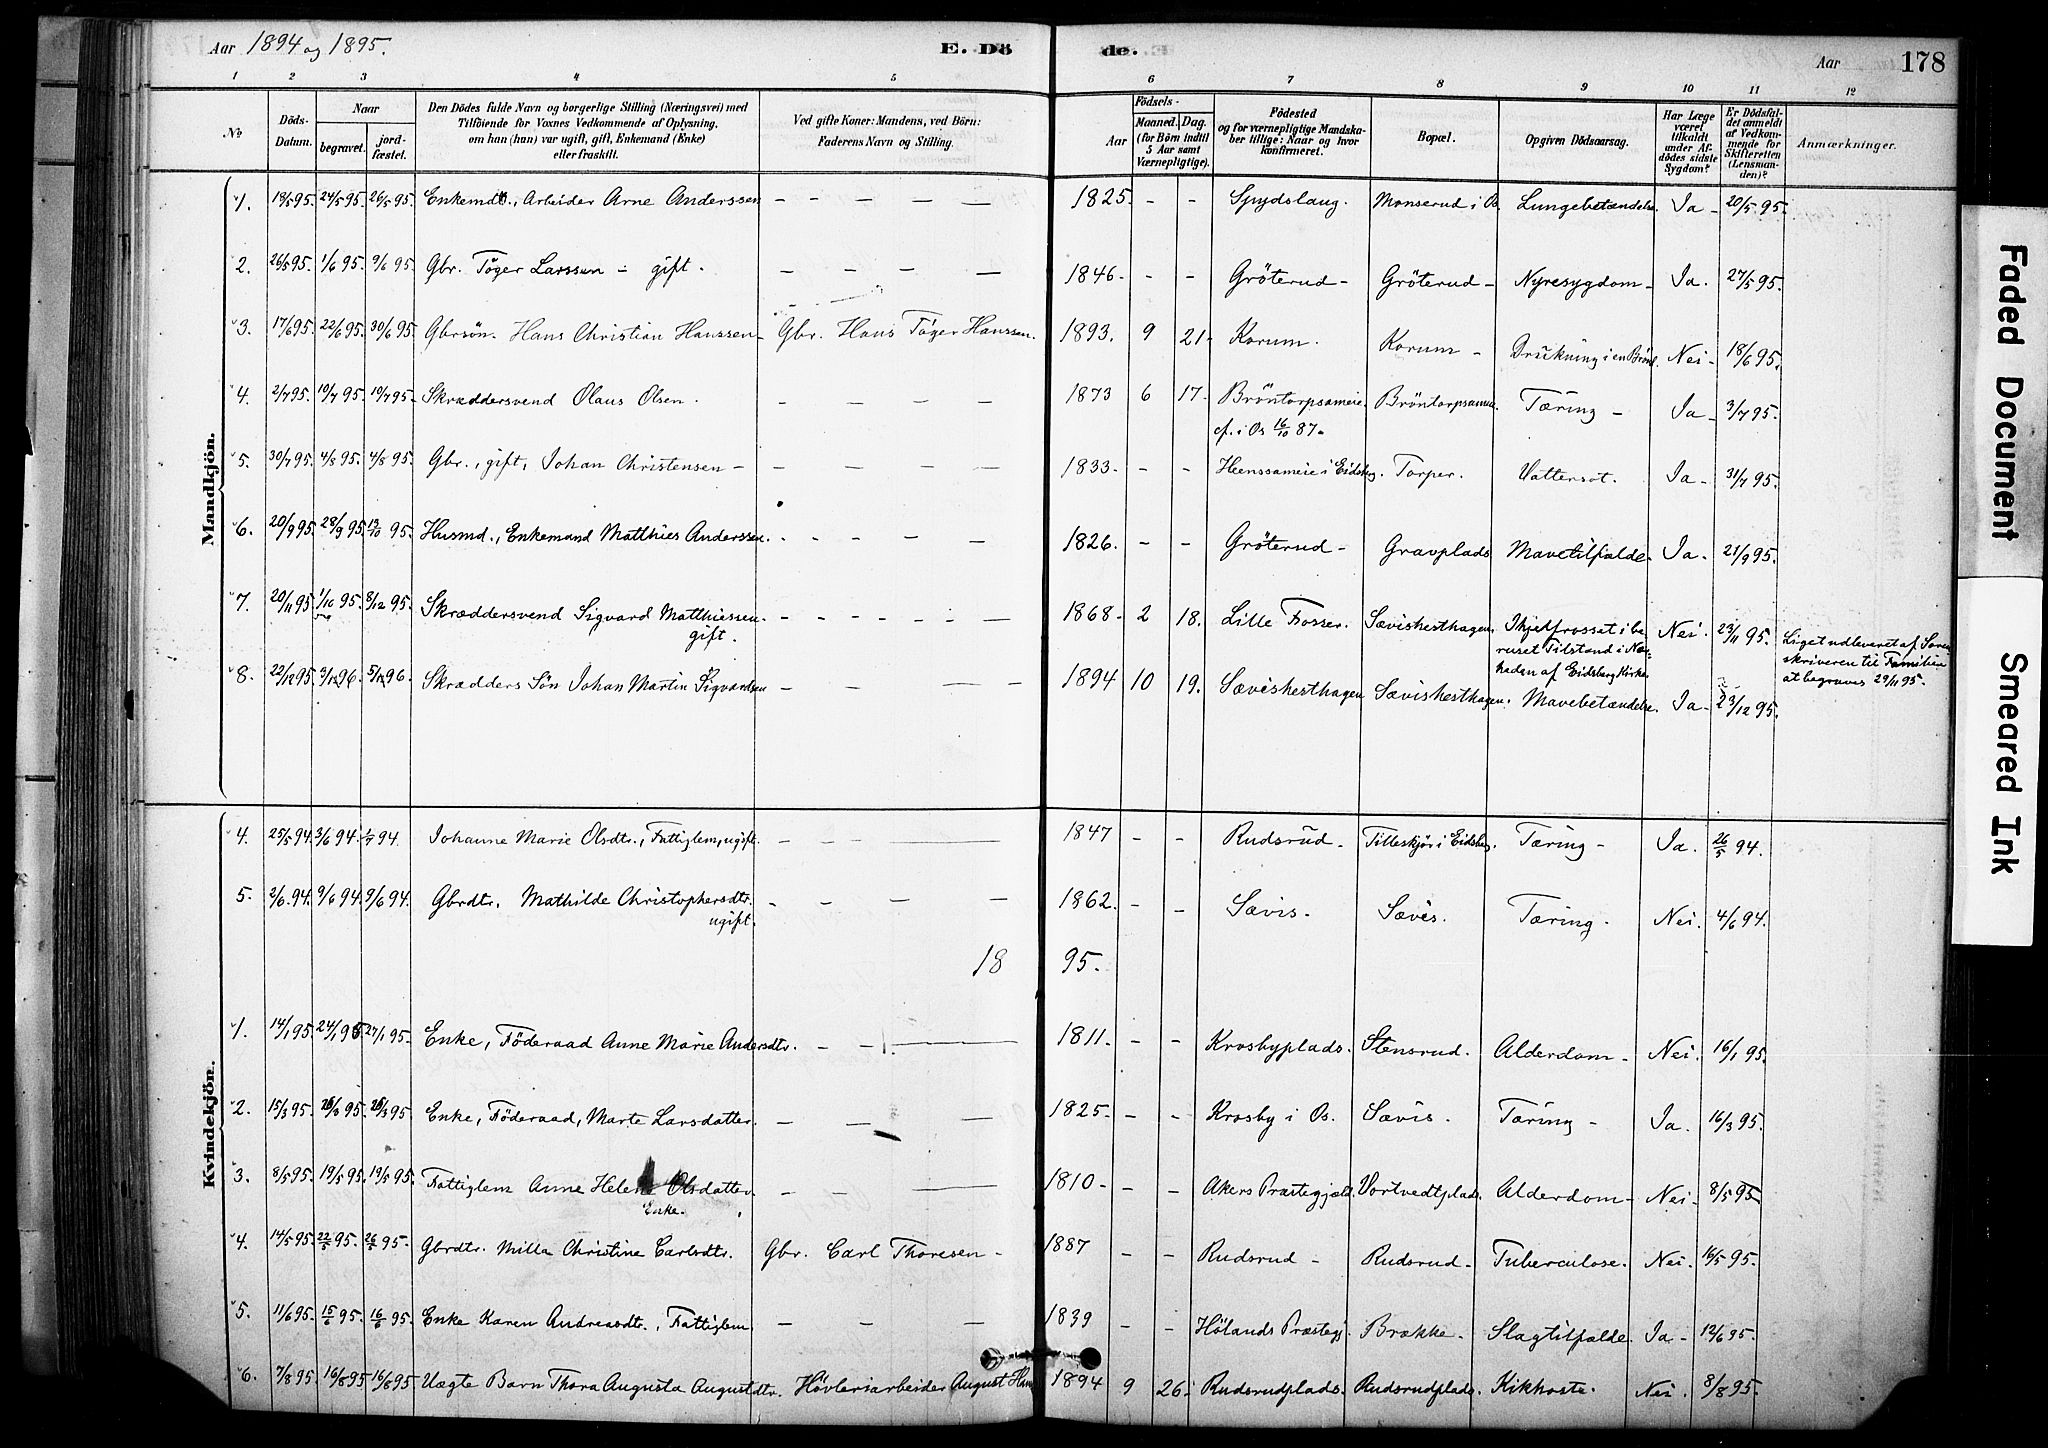 Aar 1894 og 1895.
E. Dö
de.
Aar
178
1 2 3 4 5 6 7 8 9 10 11 12
No
Döds-
Datum.
Naar
begravet.
jord-
fæstet.
Den Dödes fulde Navn og borgerlige Stilling (Næringsvei) med
Tilföiende for Voxnes Vedkommende af Oplysning,
om han (hun) var ugift, gift, Enkemand (Enke)
eller fraskilt.
Ved gifte Koner: Mandens, ved Börn:
Faderens Navn og Stilling.
Aar
Födsels-
Maaned. Dag.
(for Börn indtil
5 Aar samt
Værnepligtige).
Födested
og for værnepligtige Mandska-
ber tillige: Naar og hvor
konfirmeret.
Bopæl.
Opgiven Dödsaarsag.
Har Læge
været
tilkaldt
under Af-
dödes sidste
Sygdom?
Er Dödsfal-
det anmeldt
af Vedkom-
mende for
Skifteretten
(Lensman-
den)?
Anmærkninger.
Mandkjön.
1. 18/5 95. 24/5 95. 26/5 95. Enkemd., Arbeider Arne Anderssen — — — — — 1825. - - Spydslaug. Monserud i Os. Lungebetændelse. Ja - 20/5 95.
2. 26/5 95. 1/6 95. 9/6 95. Gbr. Töger Larssen - gift. — — — — 1846. - - Gröterud - Gröterud - Nyresygdom - Ja. 27/5 95.
3. 17/6 95. 22/6 95. 30/6 95. Gbrsön. Hans Christian Hanssen - Gbr. Hans Töger Hanssen. 1893. 9 21. Korum. Korum - Drukning i en Brönd. Nei - 18/6 95.
4. 2/7 95. 10/7 95. 10/7 95. Skræddersvend Olaus Olsen. — — — — 1873 6 17. Bröntorpsameie. Bröntorpsameie. Tæring - Ja - 3/7 95.
cf. i Os 16/10 87.
5. 30/7 95. 4/8 95. 4/8 95. Gbr., gift, Johan Christensen - — — — — 1833. - - Heenssameie i Eidsbg. Torper. Vattersot. Ja - 31/7 95.
6. 20/9 95. 28/9 95. 13/10 95. Husmd., Enkemand Matthies Anderssen. — — — — 1826. - - Gröterud - Gravplads Mavetilfælde. Ja. 21/9 95.
7. 20/11 95. 1/12 95. 8/12 95. Skræddersvend Sigvard Matthiessen - — — — — — 1868. 2 18. Lille Fosser. Sævishesthagen. Ihjelfrosset i be- Nei. 23/11 95. Liget udleveret af Soren-
gift. ruset Tilstand i Nær- skriveren til Familien
heden af Eidsberg Kirke. at begraves 29/11 95.
8. 22/12 95. 3/1 96. 5/1 96. Skrædders Sön Johan Martin Sigvardsen — — — — 1894 10 19. Sævishesthagen Sævishesthagen. Mavebetændelse. Ja - 23/12 95.
Kvindekjön.
4. 25/5 94. 3/6 94. 1/7 94. Johanne Marie Olsdtr., Fattiglem, ugift. — — — — 1847 - - Rudsrud. Tilleskjör i Eidsbg. Tæring - Ja. 26/5 94.
5. 2/6 94. 9/6 94. 9/6 94. Gbrdtr. Mathilde Christophersdtr. — — — — 1862. - - Sævis. Sævis. Tæring. Nei. 4/6 94.
ugift.
18 95.
1. 14/1 95. 24/1 95. 27/1 95. Enke, Föderaad Anne Marie Andersdtr. — — — 1811. - - Krosbyplads. Stensrud. Alderdom - Nei. 16/1 95.
2. 15/3 95. 26/3 95. 26/3 95. Enke, Föderaad, Marte Larsdatter. — — — 1825. - - Krosby i Os. Sævis. Tæring - Ja. 16/3 95.
3. 8/5 95. 19/5 95. 19/5 95. Fattiglem Anne Helene Olsdatter. — — — 1810 - - - Akers Præstegjeld. Vortvedtplads. Alderdom - Nei - 8/5 95
Enke.
4. 14/5 95. 22/5 95. 26/5 95. Gbrdtr. Milla Christine Carlsdtr. Gbr. Carl Thoresen - 1887 - - Rudsrud - Rudsrud - Tuberculose. Nei. 16/5 95.
5. 11/6 95. 15/6 95. 16/6 95. Enke Karen Andreasdtr., Fattiglem. — — — 1839 - - Hölands Præstegj. Brække. Slagtilfælde. Ja - 12/6 95.
6. 7/8 95. 16/8 95. 16/8 95. Uægte Barn Thora Augusta Augustdtr. Hövleriarbeider August Hans 1894 9 26. Rudsrudplads. Rudsrudplads. Kikhoste. Nei. 8/8 95.
Faded Document
Smeared Ink